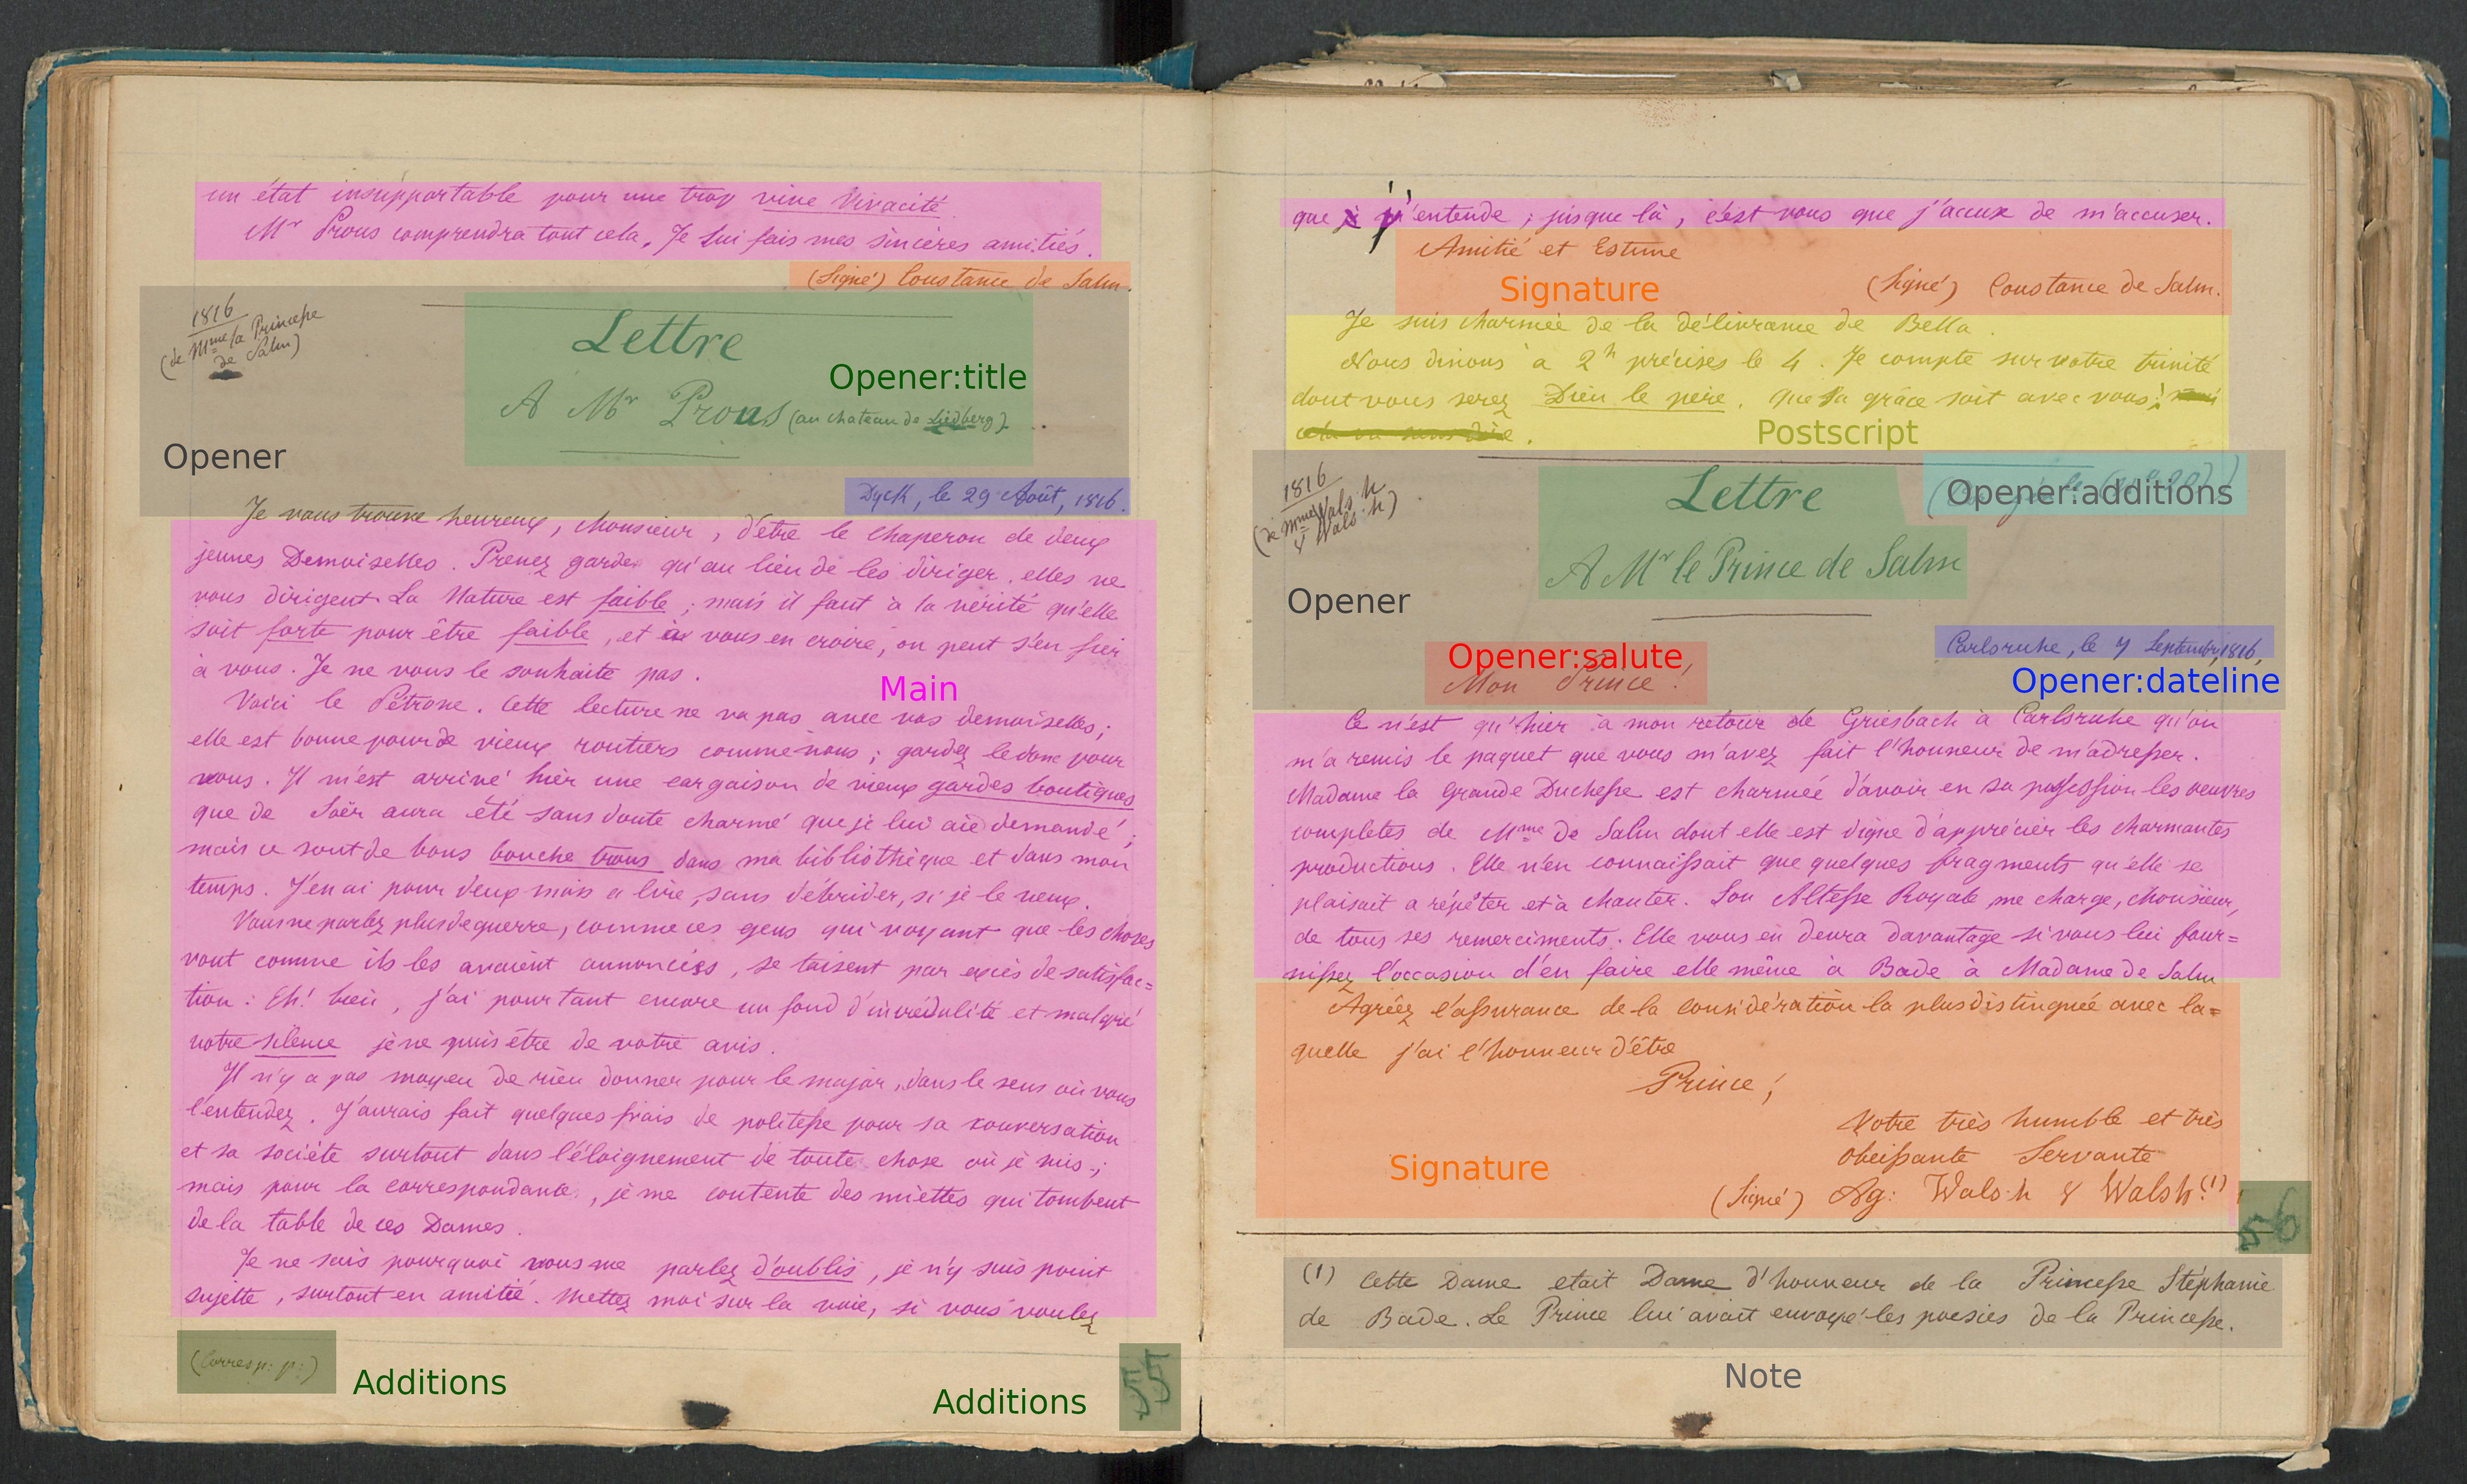 un état insupportable pour une trop vive Vivacité.
Mr Prous comprendra tout cela. Je lui fais mes sincères amitiés.
(Signé) Constance de Salm.
1816
(de Mme la Princesse
de Salm)
Lettre
Opener:title
A Mr Prous (au chateau de Liedberg)
Opener
Dyck, le 29 Août, 1816.
Je vous trouve heureux, Monsieur, d'être le chaperon de deux
jeunes Demoiselles. Prenez garde qu'au lieu de les diriger, elles ne
vous dirigent. La Nature est faible ; mais il faut à la vérité qu'elle
soit forte pour être faible, et à vous en croire, on peut s'en fier
à vous. Je ne vous le souhaite pas.
Main
Voici le Pétrone. Cette lecture ne va pas avec vos demoiselles ;
elle est bonne pour de vieux routiers comme nous ; gardez le donc pour
vous. Il m'est arrivé hier une cargaison de vieux gardes boutiques
que de Soër aura été sans doute charmé que je lui aie demandé ;
mais ce sont de bons bouche trous dans ma bibliothèque et dans mon
temps. J'en ai pour deux mois a lire, sans débrider, si je le veux.
Vous ne parlez plus de guerre, comme ces gens qui voyant que les choses
vont comme ils les avaient annoncées, se taisent par excès de satisfac=
tion : Eh! bien, j'ai pourtant encore un fond d'incrédulité et malgré
votre silence je ne puis être de votre avis.
Il n'y a pas moyen de rien donner pour le major, dans le sens où vous
l'entendez. J'aurais fait quelques frais de politesse pour sa conversation
et sa société surtout dans l'éloignement de toute chose où je suis ;
mais pour la correspondance, je me contente des miettes qui tombent
de la table de ces Dames.
Je ne sais pourquoi vous me parlez d'oublis, je n'y suis point
sujette, surtout en amitié. Mettez moi sur la voie, si vous voulez
(Corresp: p:)
Additions
Additions
55
que j'entende ; jusque là, c'est vous que j'accuse de m'accuser.
Amitié et Estime
Signature
(Signé) Constance de Salm.
Je suis charmée de la délivrance de Bella.
Nous dinons à 2h précises le 4. Je compte sur votre trinité
dont vous serez Dieu le père. Que sa grâce soit avec vous!
cela va sans dire.
Postscript
1816
(de Mme Walsh
& Walsh)
Lettre
Opener:additions
A Mr le Prince de Salm
Opener
Carlsruhe, le 7 Septembre, 1816,
Opener:salute
Opener:dateline
Mon Prince!
Ce n'est qu'hier à mon retour de Griesbach à Carlsruhe qu'on
m'a remis le paquet que vous m'avez fait l'honneur de m'adresser.
Madame la Grande Duchesse est charmée d'avoir en sa possession les oeuvres
completes de Mme de Salm dont elle est digne d'apprécier les charmantes
productions. Elle n'en connaissait que quelques fragments qu'elle se
plaisait a répéter et à chanter. Son Altesse Royale me charge, Monsieur,
de tous ses remerciments. Elle vous en devra davantage si vous lui four=
nissez l'occasion d'en faire elle même à Bade à Madame de Salm
Agréez l'assurance de la considération la plus distinguée avec la=
quelle j'ai l'honneur d'être
Prince ;
Votre très humble et très
obeissante Servante
Signature
(Signé) Ag: Walsh & Walsh (1)
56
(1) Cette Dame etait Dame d'honneur de la Princesse Stéphanie
de Bade. Le Prince lui avait envoyé les poesies de la Princesse.
Note